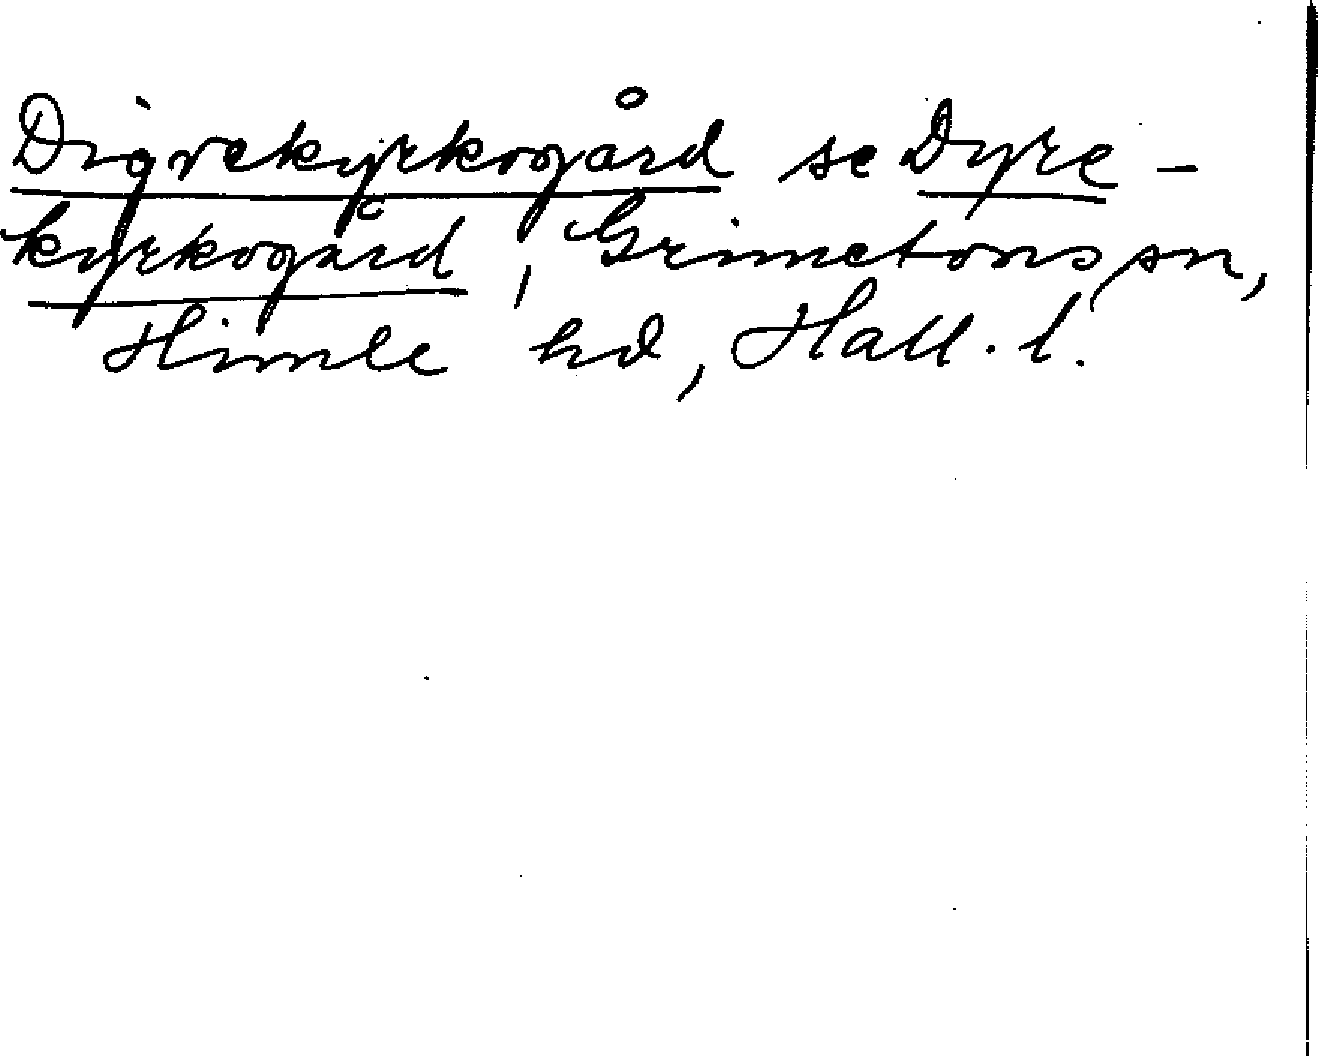 Digrekyrkogård se Dyre-
kyrkogård, Grimetons sn,
Himle hd, Hall. l.